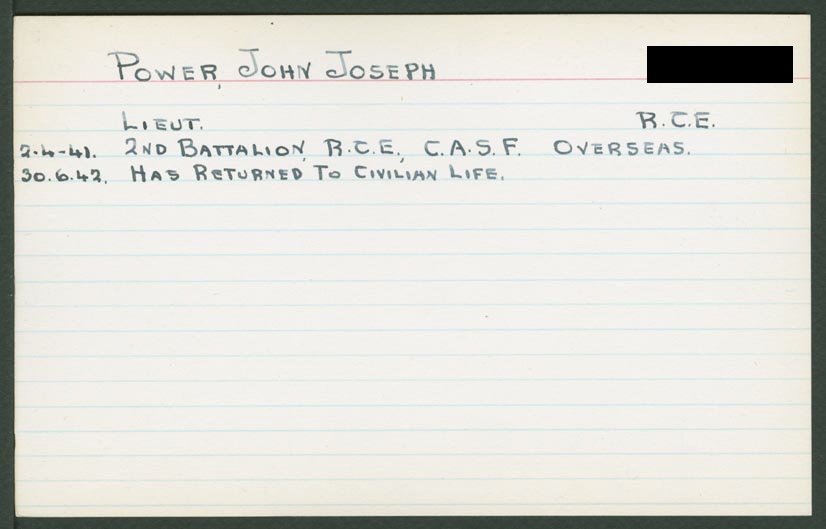 POWER, JOHN JOSEPH
LIEUT. R.C.E.
2-4-41. 2ND BATTALION, R.C.E., C.A.S.F. OVERSEAS.
30.6.42. HAS RETURNED TO CIVILIAN LIFE.